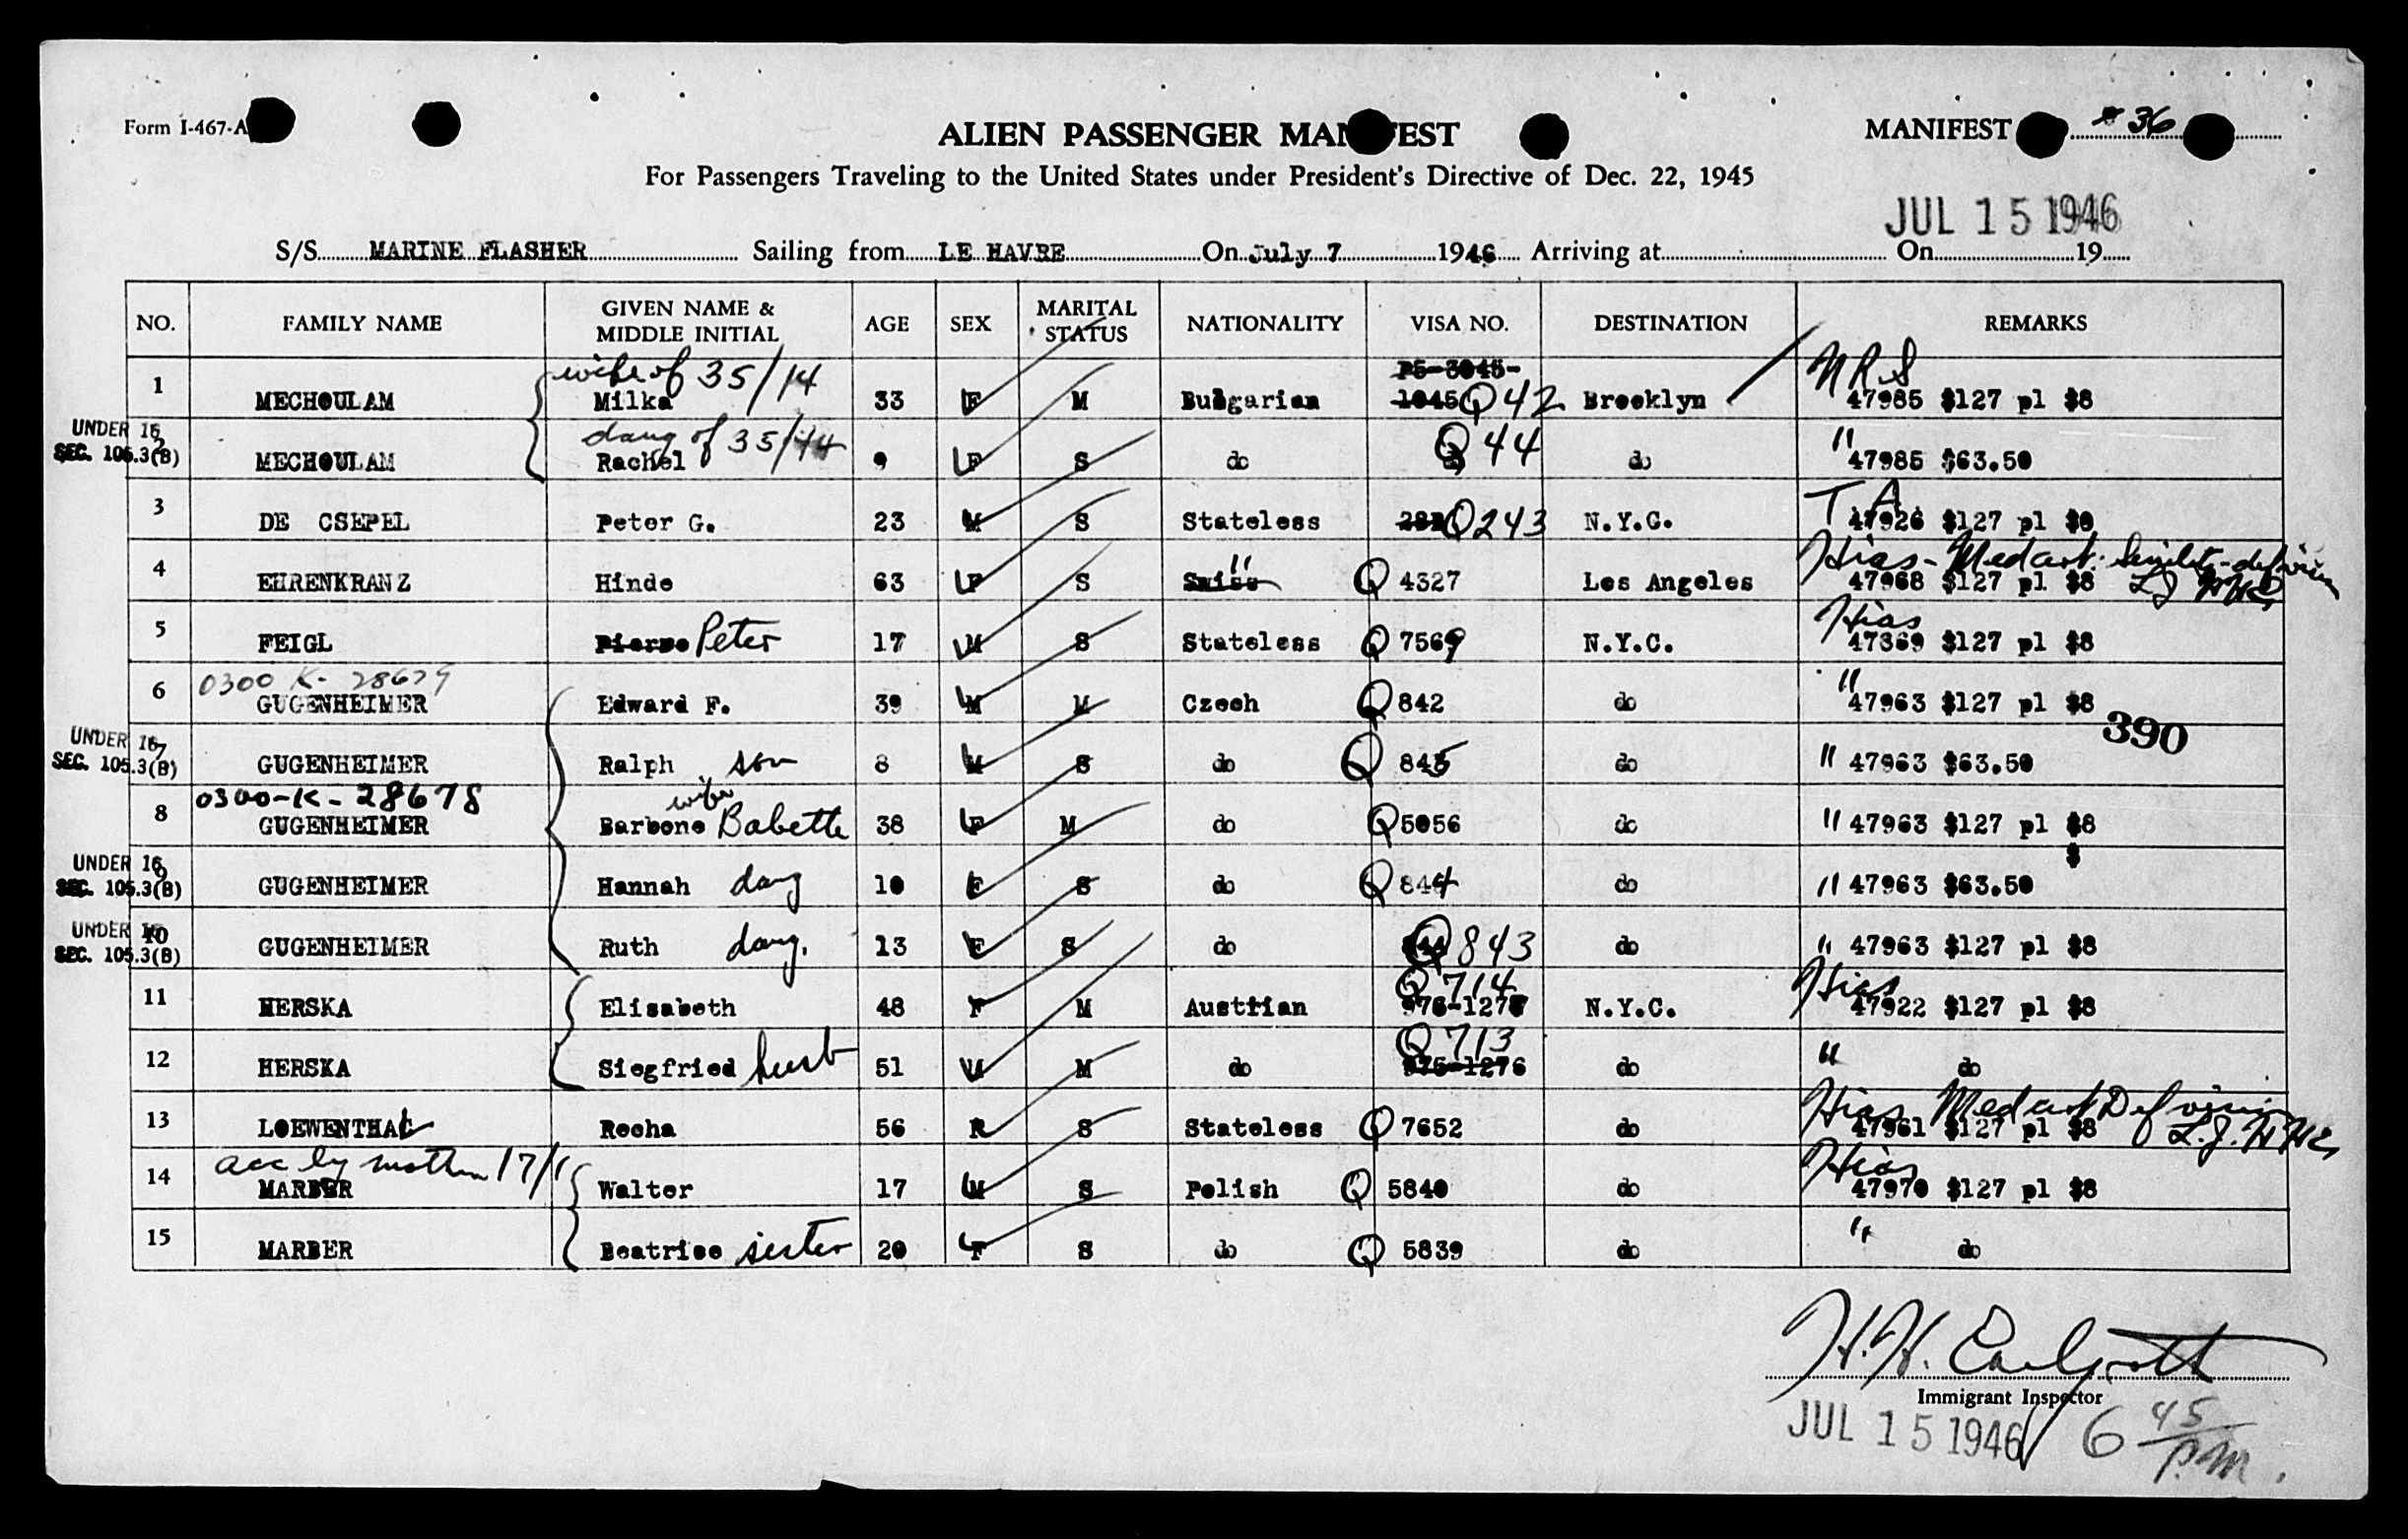 Form I-467-A
ALIEN PASSENGER MANIFEST
MANIFEST # 36
For Passengers Traveling to the United States under President's Directive of Dec. 22, 1945
JUL 15 1946
S/S MARINE FLASHER Sailing from LE HAVRE On July 7 1946 Arriving at On 19
NO. FAMILY NAME GIVEN NAME & MIDDLE INITIAL AGE SEX MARITAL STATUS NATIONALITY VISA NO. DESTINATION REMARKS
wife of 35/14 P5-3045- NRS
1 MECHOULAM Milka 33 F M Bulgarian 1045 Q 42 Brooklyn 47985 $127 pl $8
UNDER 16 daug of 35/14
SEC. 105.3(B) 2 MECHOULAM Rachel 9 F S do Q 44 do " 47985 $63.50
T A
3 DE CSEPEL Peter G. 23 M S Stateless Q243 N.Y.C. 47926 $127 pl $8
Hias - Med cert.
4 EHRENKRANZ Hinde 63 F S Swiss " Q 4327 Los Angeles 47968 $127 pl $8
Hias
5 FEIGL Pierre Peter 17 M S Stateless Q 7569 N.Y.C. 47369 $127 pl $8
0300 K- 28679
6 GUGENHEIMER Edward F. 39 M M Czech Q 842 do " 47963 $127 pl $8
390
UNDER 16
SEC. 105.3(B) 7 GUGENHEIMER Ralph son 8 M S do Q 845 do " 47963 $63.50
0300-K-28678 wife
8 GUGENHEIMER Barbone Babette 38 F M do Q5056 do " 47963 $127 pl $8
$
UNDER 16
SEC. 105.3(B) 9 GUGENHEIMER Hannah daug 10 F S do Q 844 do " 47963 $63.50
UNDER 16
SEC. 105.3(B) 10 GUGENHEIMER Ruth daug. 13 F S do Q 843 do " 47963 $127 pl $8
Q 714 Hias
11 HERSKA Elisabeth 48 F M Austrian 976-1277 N.Y.C. 47922 $127 pl $8
Q 713
12 HERSKA Siegfried husb 51 M M do 975-1276 do " do
Hias Med cert Def vision
13 LOEWENTHAL Recha 56 F S Stateless Q 7652 do 47961 $127 pl $8
acc by mother 17/1 Hias
14 MARBER Walter 17 M S Polish Q 5840 do 47970 $127 pl $8
15 MARBER Beatrice sister 20 F S do Q 5839 do " do
Immigrant Inspector
JUL 15 1946 6 45 P.M.